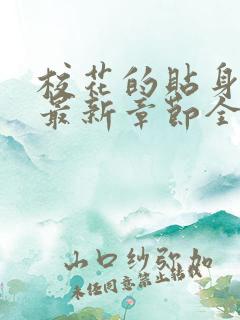 校花的贴身
最新章节全
山口纱弥加
未经同意禁止转载